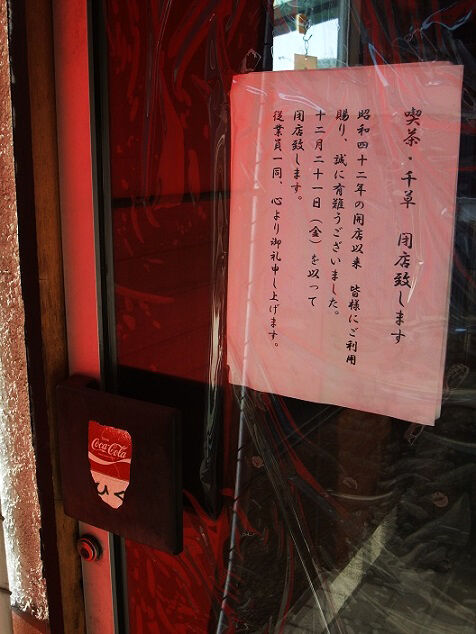 喫茶・千草　閉店致します
昭和四十二年の開店以来　皆様にご利用
賜り、誠に有難うございました。
十二月二十一日（金）を以って
閉店致します。
従業員一同、心より御礼申し上げます。
Coca-Cola
ひく